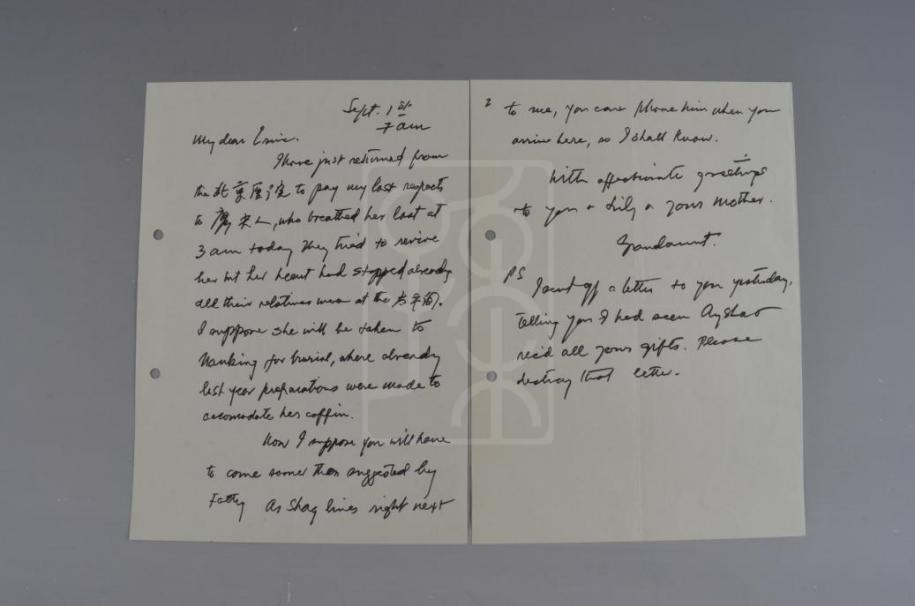 Sept. 1st
7 am
My dear
I have just returned from
the 北京医院 to pay my last respects
to 廖夫人, who breathed her last at
3 am today They tried to revive
her but her heart had stopped already
all their relatives were at the太平间.
I suppose she will be taken to
Nanking for burial, where already
last year preparations were made to
accomodate her coffin.
Now I suppose you will have
to come sooner than suggested by
Fatty As Shag lives right next
2
to me, you can phone him when you
arrive here, so I shall know.
With affectionate greetings
to you & Lily & your mother.
Grandaunt.
PS
I sent off a letter to you yesterday,
telling you I had seen Ayshao
rec'd all your gifts. Please
destroy that letter.